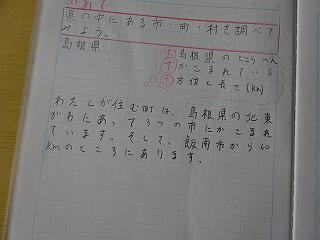 めあて
県の中にある市・町・村を調べて
みよう。
島根県
ホ 島根県のどこらへん
オ かこまれている
ホ 方位と長さ(km)
わたしが住む町は、島根県の北東
がわにあって3つの市にかこまれ
ています。そして、飯南市から60
kmのところにあります。